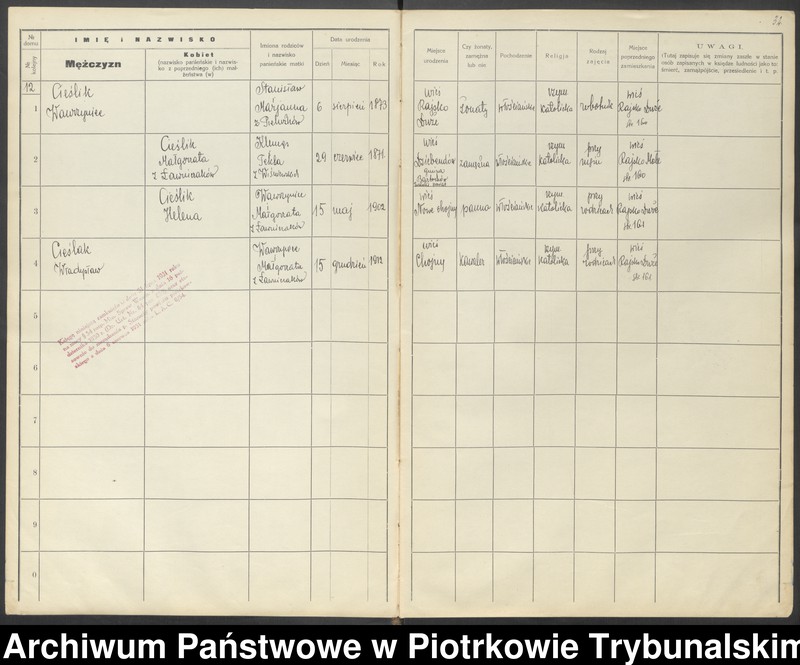 54
№ domu
№ kolejny
IMIĘ i NAZWISKO
Mężczyzn
Kobiet
(nazwisko panieńskie i nazwisko z poprzedniego (ich) małżeństwa (w)
Imiona rodziców
i nazwisko
panieńskie matki
Data urodzenia
Dzień
Miesiąc
Rok
Miejsce
urodzenia
Czy żonaty,
zamężna
lub nie
Pochodzenie
Religja
Rodzaj
zajęcia
Miejsce
poprzedniego
zamieszkania
UWAGI
(Tutaj zapisuje się zmiany zaszłe w stanie
osób zapisanych w księdze ludności jako to:
śmierć, zamążpójście, przesiedlenie i t. p.
12
1
Cieślik
Wawrzyniec
Stanisław
Marjanna
6
sierpień
1873
wieś
Rajsko
Duże
żonaty
włościańskie
rzym
katolicka
robotnik
wieś
Rajsko Duże
№ 160
2
Cieślik
Małgorzata
z Ławniczaków
Klemes
Tekla
29
czerwiec
1871
wieś
gmina
zamężna
włościańskie
rzym
katolicka
przy
mężu
wieś
Rajsko Małe
№ 160
3
Cieślik
Helena
Wawrzyniec
Małgorzata
z Ławniczaków
15
maj
1902
wieś
Nowe Chojny
panna
włościańskie
rzym
katolicka
przy
rodzicach
wieś
Rajsko Duże
№ 161
4
Cieślak
Władysław
Wawrzyniec
Małgorzata
z Ławniczaków
15
grudzień
1912
wieś
Chojny
kawaler
włościańskie
rzym
katolicka
przy
rodzicach
wieś
Rajsko Duże
№ 161
5
6
7
8
9
0
Archiwum Państwowe w Piotrkowie Trybunalskim